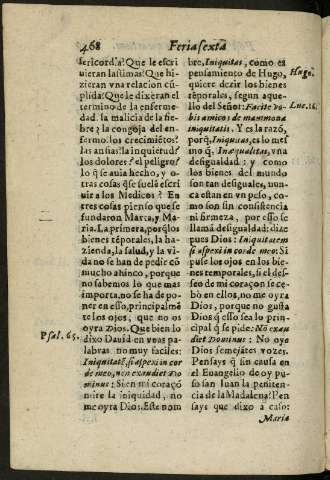 468
Feria sexta
sericordia? Que le escri
uieran lastimas? Que hi-
zieran vna relacion cũ-
plida? Que le dixeran el
termino de la enferme-
dad, la malicia de la fie-
bre, la congoja del en-
fermo, los crecimiẽtos?
las ansias? la inquietud?
los dolores? el peligro?
lo q̃ se auia hecho, y o-
tras cosas q̃ se suelẽ escri
uir a los Medicos? En
tres cosas piẽso que se
fundaron Marta, y Ma-
ria. La primera, porq̃ los
bienes tẽporales, la ha-
zienda, la salud, y la vi-
da no se han de pedir cõ
mucho ahinco, porque
no sabemos lo que mas
importa, no se ha de po-
ner en esso, principalmẽ
te los ojos, que no os
oyra Dios. Que bien lo
dixo Dauid en vnas pa-
labras no muy faciles:
Iniquitatẽ, si aspexi in cor
de meo, nõ exaudiet Do
minus: Si en mi coraçõ
mire la iniquidad, no
me oyra Dios. Este nom
Psal. 65.
bre, Iniquitas, como es
pensamiento de Hugo,
quiere dezir los bienes
tẽporales, segun aque-
llo del Señor: Facite vo-
bis amicos de mammona
iniquitatis. Y es la razõ,
porq̃, Iniquitas, es lo mes
mo q̃, Inæqualitas, vna
desigualdad: y como
los bienes del mundo
son tan desiguales, nun-
ca estan en vn peso, co-
mo son sin consistencia
ni firmeza, por esso se
llamã desigualdad: dize
pues Dios: Iniquitatem
si aspexi in corde meo: Si
puse los ojos en los bie-
nes temporales, si el des-
seo de mi coraçon se ce-
bò en ellos, no me oyra
Dios, porque no gusta
Dios q̃ esso sea lo prin-
cipal q̃ se pide: Nõ exau
diet Dominus: No oye
Dios semejãtes vozes.
Pensays q̃ sin causa en
el Euangelio de oy pu-
so san Iuan la peniten-
cia de la Madalena? Pen
says que dixo a caso:
Hugo.
Luc. 16.
Maria